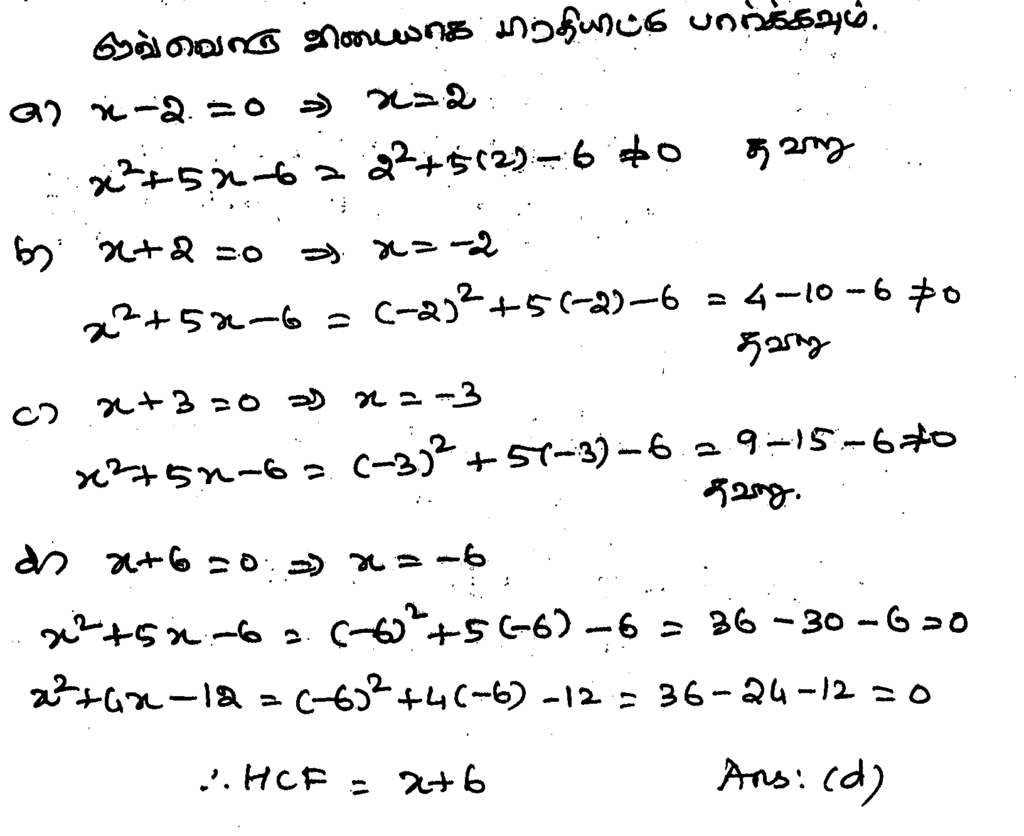 ஒவ்வொரு விடையாக பிரதியிட்டு பார்க்கவும்.
a) x-2=0 ⇒ x=2
x²+5x-6 = 2²+5(2)-6 ≠0 தவறு
b) x+2=0 ⇒ x=-2
x²+5x-6 = (-2)²+5(-2)-6 = 4-10-6 ≠0
தவறு
c) x+3=0 ⇒ x=-3
x²+5x-6 = (-3)²+5(-3)-6 = 9-15-6≠0
தவறு.
d) x+6=0 ⇒ x=-6
x²+5x-6 = (-6)²+5(-6)-6 = 36-30-6=0
x²+4x-12 = (-6)²+4(-6)-12 = 36-24-12=0
∴ HCF = x+6 Ans: (d)